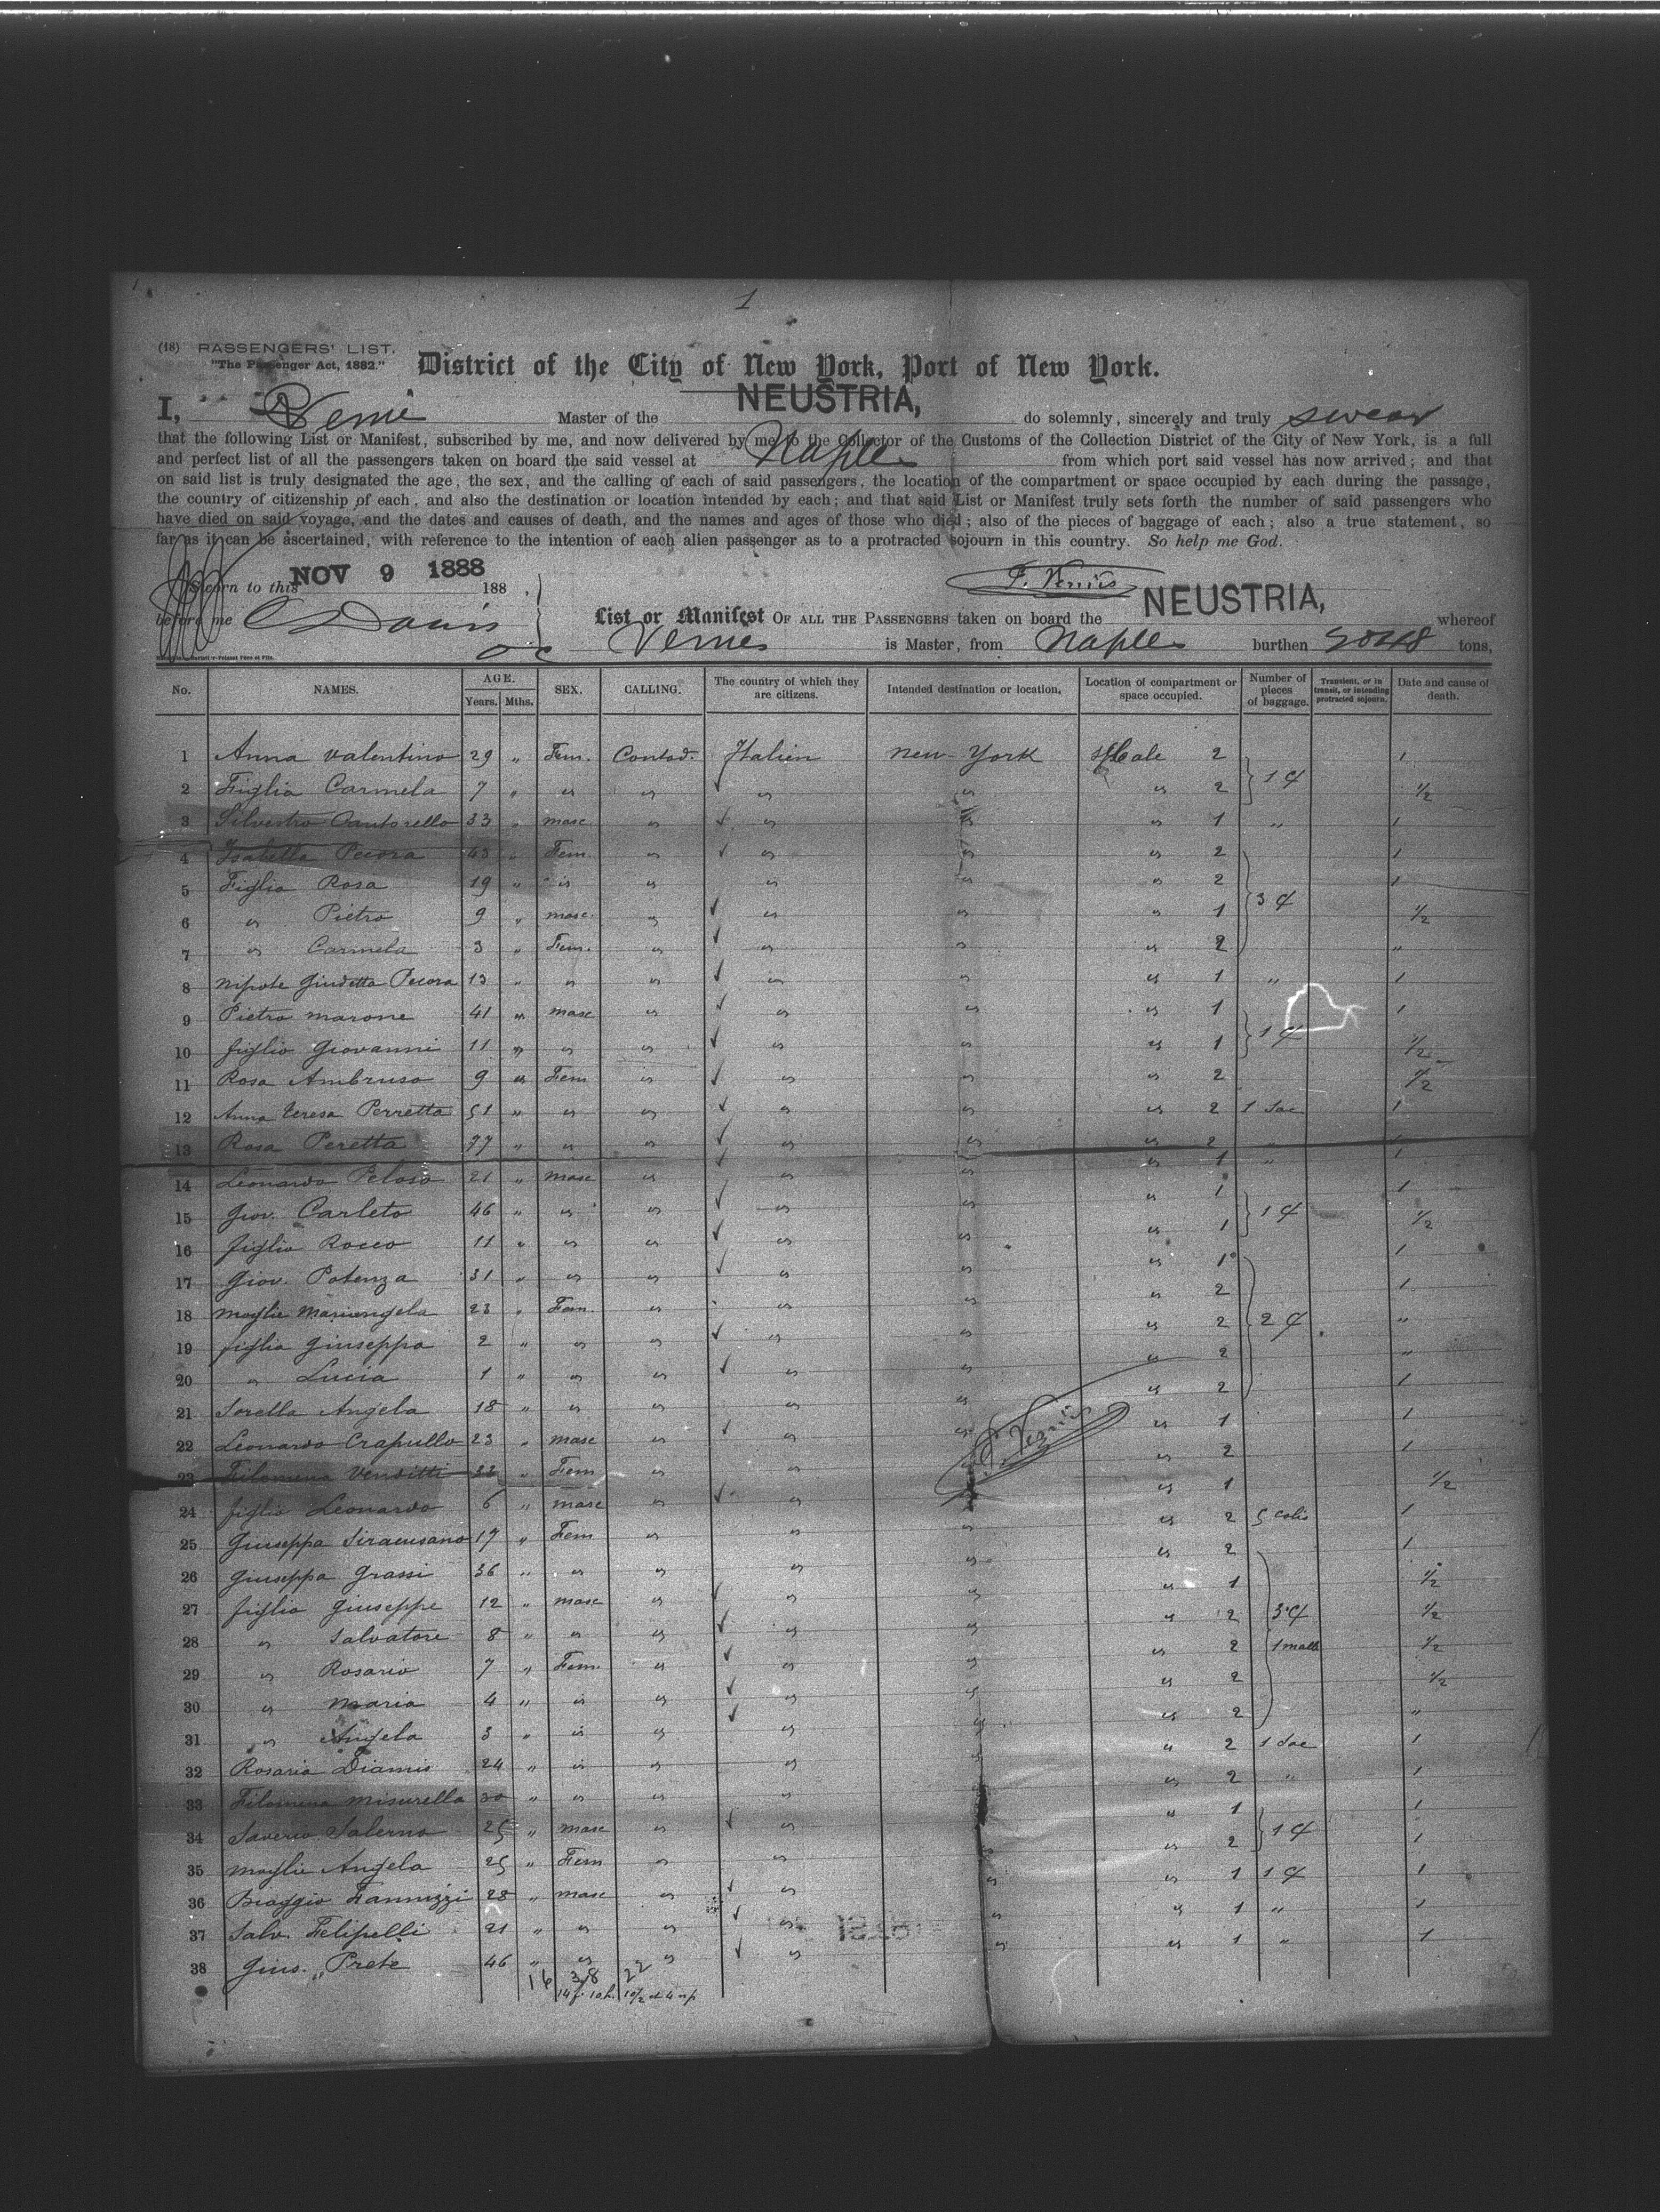 1
(18) PASSENGERS' LIST.
"The Passenger Act, 1882."
District of the City of New York, Port of New York.
NEUSTRIA,
I, Master of the do solemnly, sincerely and truly swear
that the following List or Manifest, subscribed by me, and now delivered by me to the Collector of the Customs of the Collection District of the City of New York, is a full
and perfect list of all the passengers taken on board the said vessel at Naples from which port said vessel has now arrived; and that
on said list is truly designated the age, the sex, and the calling of each of said passengers, the location of the compartment or space occupied by each during the passage,
the country of citizenship of each, and also the destination or location intended by each; and that said List or Manifest truly sets forth the number of said passengers who
have died on said voyage, and the dates and causes of death, and the names and ages of those who died; also of the pieces of baggage of each; also a true statement, so
far as it can be ascertained, with reference to the intention of each alien passenger as to a protracted sojourn in this country. So help me God.
Sworn to this NOV 9 1888 188
before me
List or Manifest OF ALL THE PASSENGERS taken on board the NEUSTRIA, whereof
is Master, from Naples burthen tons,
No. NAMES. AGE. Years. Mths. SEX. CALLING. The country of which they are citizens. Intended destination or location. Location of compartment or space occupied. Number of pieces of baggage. Transient, or in transit, or intending protracted sojourn. Date and cause of death.
1 Anna Valentino 29 " Fem. Contad. Italien New-York 2 1
2 Figlia Carmela 7 " " " " " " 2 1 C 1/2
3 Silvestro Cantorello 33 " masc " " " " 1 " 1
4 Isabella Pecora 43 " Fem. " " " " 2 1
5 Figlia Rosa 19 " " " " " " 2 1
6 " Pietro 9 " masc. " " " " 1 3 C 1/2
7 " Carmela 3 " Fem. " " " " 2 "
8 Nipote Giudetta Pecora 13 " " " " " " 1 " 1
9 Pietro Marone 41 " masc " " " " 1 1
10 figlio Giovanni 11 " " " " " " 1 1 C 1/2
11 Rosa Ambruso 9 " Fem " " " " 2 1/2
12 Anna Teresa Perretta 51 " " " " " " 2 1 Sac 1
13 Rosa Peretta 77 " " " " " " 2 " 1
14 Leonardo Peloso 21 " masc " " " " 1 " 1
15 Giov. Carleto 46 " " " " " " 1 1
16 figlio Rocco 11 " " " " " " 1 1 C 1/2
17 Giov. Potenza 31 " " " " " " 1 1
18 Moglie Mariangela 23 " Fem. " " " " 2 1
19 figlia Giuseppa 2 " " " " " " 2 2 C "
20 " Lucia 1 " " " " " " 2 "
21 Sorella Angela 18 " " " " " " 2 1
22 Leonardo Crapullo 23 " masc " " " " 1 1
23 Filomena Venditti 33 " Fem " " " " 2 1
24 figlio Leonardo 6 " masc " " " " 1 1/2
25 Giuseppa Siracusano 17 " Fem " " " " 2 5 colis 1
26 Giuseppa Grassi 36 " " " " " " 2 1
27 figlio Giuseppe 12 " masc " " " " 1 1/2
28 " Salvatore 8 " " " " " " 2 3 C 1/2
29 " Rosario 7 " Fem. " " " " 2 1 malle 1/2
30 " Maria 4 " " " " " " 2 1/2
31 " Angela 3 " " " " " " 2 "
32 Rosaria Diamis 24 " " " " " " 2 1 Sac 1
33 Filomena Misurella 30 " " " " " " 2 " 1
34 Saverio Salerno 25 " masc " " " " 1 1
35 Moglie Angela 25 " Fem " " " " 2 1 C 1
36 Biaggio Iannizzi 28 " masc " " " " 1 1 C 1
37 Salv. Felipelli 21 " " " " " " 1 " 1
38 Gius. Prete 46 " " " " " " 1 " 1
16 38 22